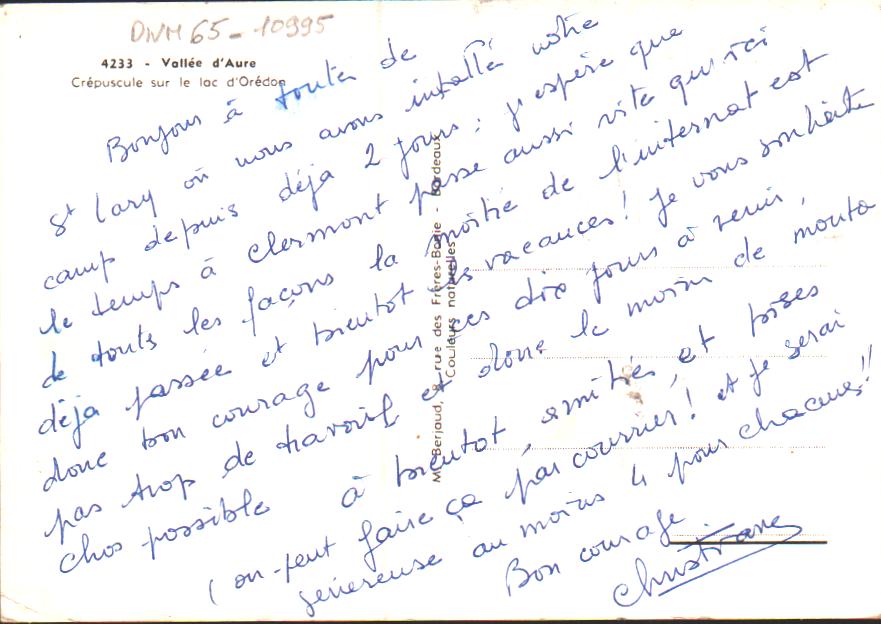 DNM 65-10995
4233 - Vallée d'Aure
Crépuscule sur le lac d'Orédon
Bonjour à toutes de
St Lary où nous avons installé notre
camp depuis déjà 2 jours ; j'espère que
le temps à Clermont passe aussi vite qu'ici
de toutes les façons la moitié de l'internat est
déjà passée et bientôt les vacances ! Je vous souhaite
donc bon courage pour ces dix jours à venir,
pas trop de travail et donc le moins de
chos possible à bientôt, amitiés et bises
(on peut faire ça par courrier ! et je serai
généreuse au moins 4 pour chacune !!
Bon courage
Christiane
rue des Frères-Bonie - Bordeaux
Couleurs naturelles